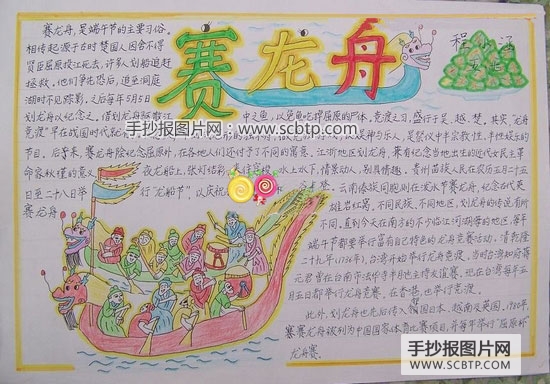 赛龙舟
程小涵
赛龙舟,是端午节的主要习俗。
相传起源于古时楚国人因舍不得
贤臣屈原投江死去,许多人划船追赶
拯救。他们争先恐后,追至洞庭
湖时不见踪影,之后每年5月5日
划龙舟以纪念之。借划龙舟驱散江
中之鱼,以免鱼吃掉屈原的尸体。竞渡之习,盛行于吴、越、楚。其实,"龙舟
竞渡"早在战国时代就
节目。后来,赛龙舟除纪念屈原外,在各地人们还付予了不同的寓意。江浙地区划龙舟,兼有纪念当地出生的近代女民主革
命家秋瑾的意义。夜龙船上,张灯结彩,来往穿梭,水上水下,情景动人,别具情趣。贵州苗族人民在农历五月二十五
日至二十八日举行"龙船节",以庆祝
云南傣族同胞则在泼水节赛龙舟,纪念古代英
雄岩红窝。不同民族、不同地区,划龙舟的传说有所
不同。直到今天在南方的不少临江河湖海的地区,每年
端午节都要举行富有自己特色的龙舟竞赛活动。清乾隆
二十九年(1736年),台湾开始举行龙舟竞渡,当时台湾知府蒋
元君曾在台南市法华寺半月池主持友谊赛。现在台湾每年五
月五日都举行龙舟竞赛。在香港,也举行竞渡。
此外,划龙舟也先后传入邻国日本、越南及英国。1980年,
赛龙舟被列为中国国家体育比赛项目,并每年举行"屈原杯"
龙舟赛。
手抄报图片网 www.scbtp.com
手抄报图片网
SCBTP.COM